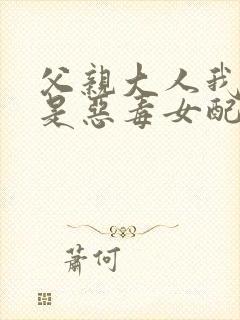 父親大人我
是惡毒女配
蕭何